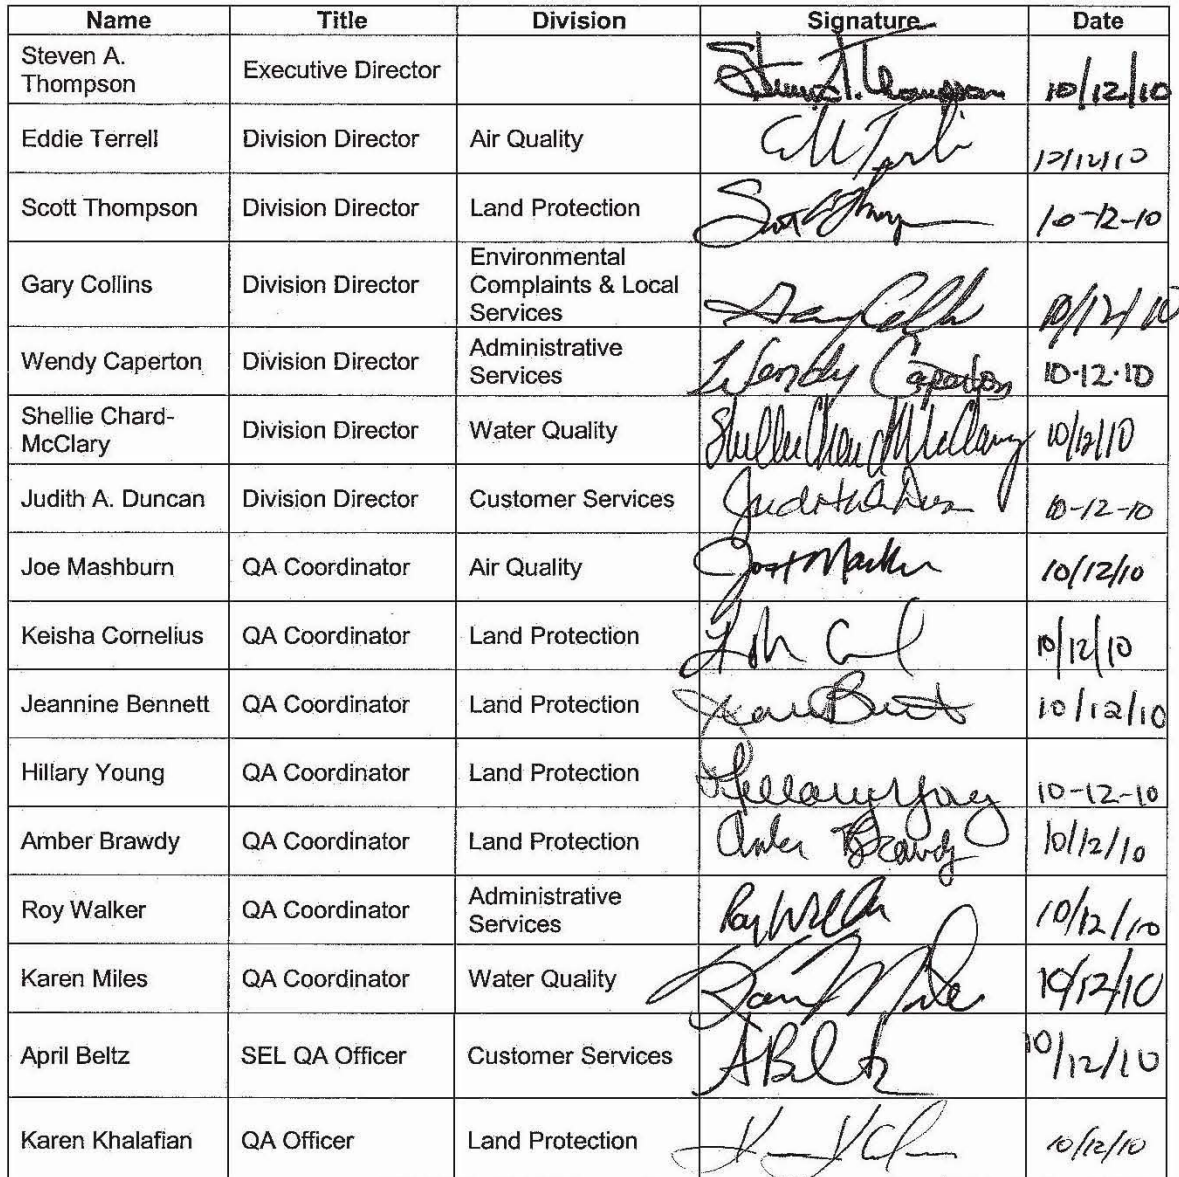 Name Title Division Signature Date
Steven A.
Thompson Executive Director Steven A. Thompson 10/12/10
Eddie Terrell Division Director Air Quality 10/12/10
Scott Thompson Division Director Land Protection 10-12-10
Environmental
Gary Collins Division Director Complaints & Local 10/12/10
Services
Wendy Caperton Division Director Administrative
Services Wendy Caperton 10·12·10
Shellie Chard-
McClary Division Director Water Quality Shellie Chard McClary 10/12/10
Judith A. Duncan Division Director Customer Services 10-12-10
Joe Mashburn QA Coordinator Air Quality 10/12/10
Keisha Cornelius QA Coordinator Land Protection 10/12/10
Jeannine Bennett QA Coordinator Land Protection 10/12/10
Hillary Young QA Coordinator Land Protection Hillary Young 10-12-10
Amber Brawdy QA Coordinator Land Protection Amber Brawdy 10/12/10
Roy Walker QA Coordinator Administrative
Services 10/12/10
Karen Miles QA Coordinator Water Quality 10/12/10
April Beltz SEL QA Officer Customer Services A Beltz 10/12/10
Karen Khalafian QA Officer Land Protection 10/12/10